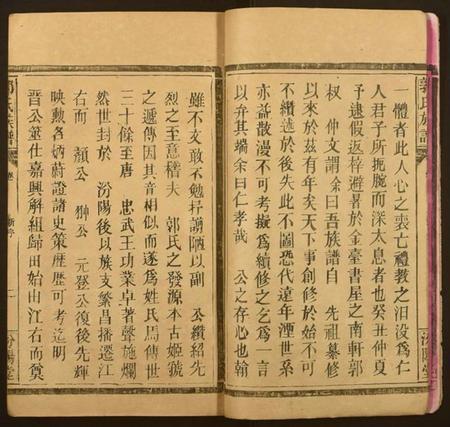 一體者此人心之喪亡禮教之汨没為仁
人君子所扼腕而深太息者也癸丑仲夏
予遠假返梓避暑於金臺書屋之南軒郭
叔 仲文謂余曰吾族譜自 先祖纂修
以來於兹有年矣天下事創修於始不可
不續述於後失此不圖恐代遠年湮世系
亦益散漫不可考擬為續修之乞為一言
以弁其端余曰仁孝哉 公之存心也翰
雖不文敢不勉抒謭陋以副 公纘紹先
烈之至意稽夫 郭氏之發源本古姬虢
之遞傳因其音相似而遂為姓氏焉傳世
三十餘至唐 忠武王功業卓著聲施爛
然世封於 汾陽後以族支繁昌播遷江
右而 顏公 翀公 元登公復後先輝
映勲名炳蔚證諸史策歴歴可考迄明
晉公筮仕嘉興解組歸田始由江右而奠
郭氏族譜
郭氏族譜
卷
新序
一
汾陽堂
汾陽堂